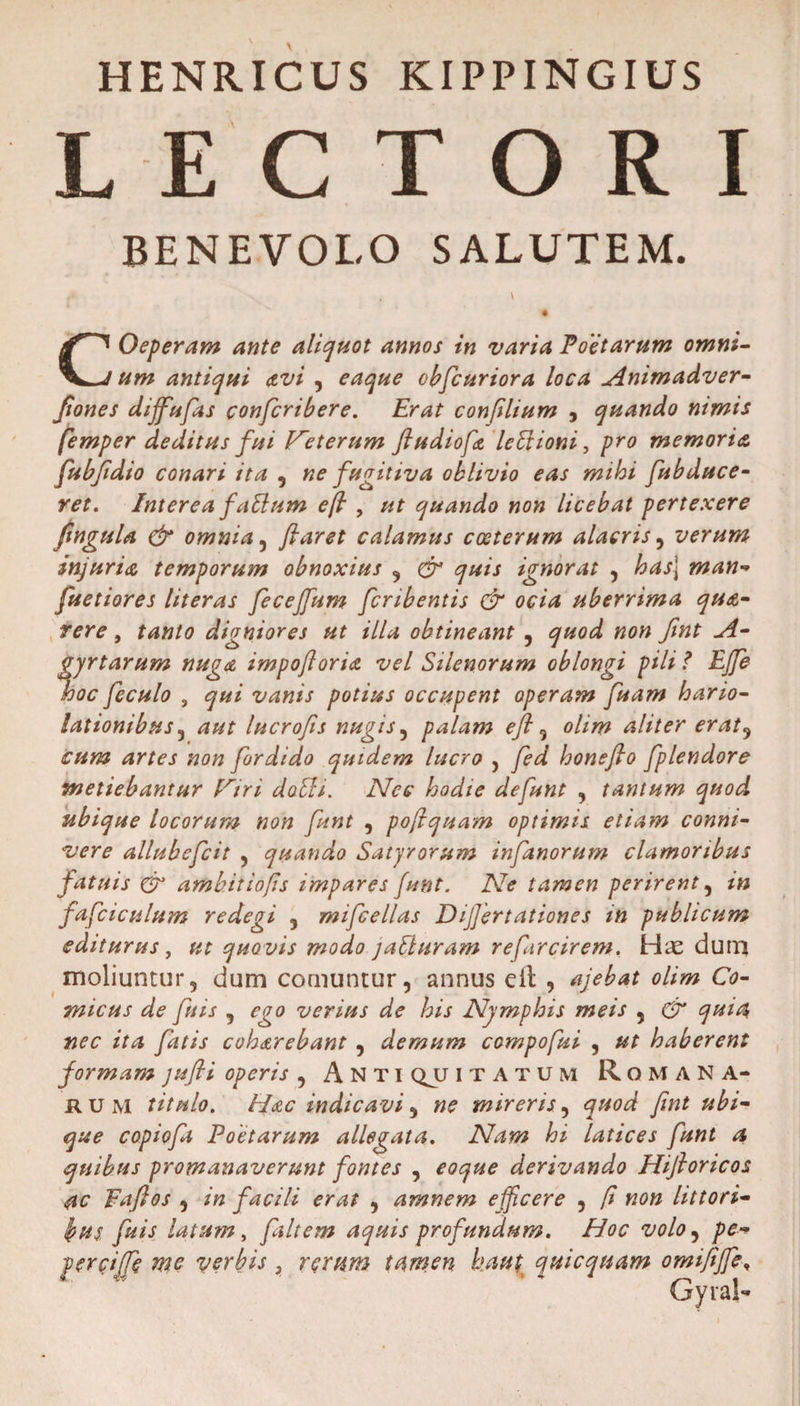 HENRICUS KIPPINGIUS
LECTORI
BENEVOLO SALUTEM.
COeperam ante aliquot annos in varia Poëtarum omni-
um antiqui ævi, eaque obſcuriora loca Animadver-
ſiones diffuſas conſcribere. Erat conſilium, quando nimis
ſemper deditus fui Veterum ſtudioſæ lectioni, pro memoriæ
ſubſidio conari ita, ne fugitiva oblivio eas mihi ſubduce-
ret. Interea factum eſt, ut quando non licebat pertexere
ſingula & omnia, ſtaret calamus cæterum alacris, verum
injuriæ temporum obnoxius, & quis ignorat, has man-
ſuetiores literas ſeceſſum ſcribentis & ocia uberrima quæ-
rere, tanto digniores ut illa obtineant, quod non ſint A-
gyrtarum nugæ impoſtoriæ vel Silenorum oblongi pili? Eſſe
hoc ſeculo, qui vanis potius occupent operam ſuam hario-
lationibus, aut lucroſis nugis, palam eſt, olim aliter erat,
cum artes non ſordido quidem lucro, ſed honeſto ſplendore
metiebantur Viri docti. Nec hodie deſunt, tantum quod
ubique locorum non ſunt, poſtquam optimis etiam conni-
vere allubeſcit, quando Satyrorum inſanorum clamoribus
fatuis & ambitioſis impares ſunt. Ne tamen perirent, in
faſciculum redegi, miſcellas Diſſertationes in publicum
editurus, ut quovis modo jacturam reſarcirem. Hæ dum
moliuntur, dum comuntur, annus eſt, ajebat olim Co-
micus de ſuis, ego verius de his Nymphis meis, & quia
nec ita ſatis cohærebant, demum compoſui, ut haberent
formam juſti operis, ANTIQUITATUM ROMANA-
RUM titulo. Hæc indicavi, ne mireris, quod ſint ubi-
que copioſa Poëtarum allegata. Nam hi latices ſunt a
quibus promanaverunt fontes, eoque derivando Hiſtoricos
ac Faſtos, in facili erat, amnem efficere, ſi non littori-
bus ſuis latum, ſaltem aquis profundum. Hoc volo, pe-
perciſſe me verbis, rerum tamen haut quicquam omiſiſſe.
Gyral-